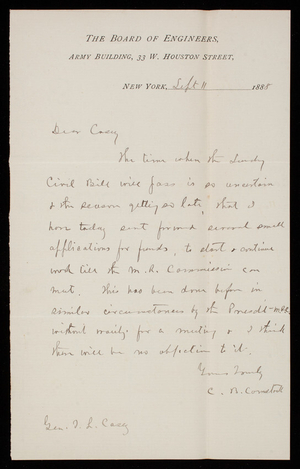 THE BOARD OF ENGINEERS,
ARMY BUILDING, 33 W. HOUSTON STREET,
NEW YORK, Sept 11 1888
Dear Casey
The time when the Sundry
Civil Bill will pass is so uncertain
& the season getting so late, that I
have today sent forward several small
applications for funds, to start & continue
work till the M. R. Commission can
meet. This has been done before in
similar circumstances by the President
without waiting for a meeting & I think
there will be no objection to it.
Yours truly
C. B. Comstock
Gen. T. L. Casey